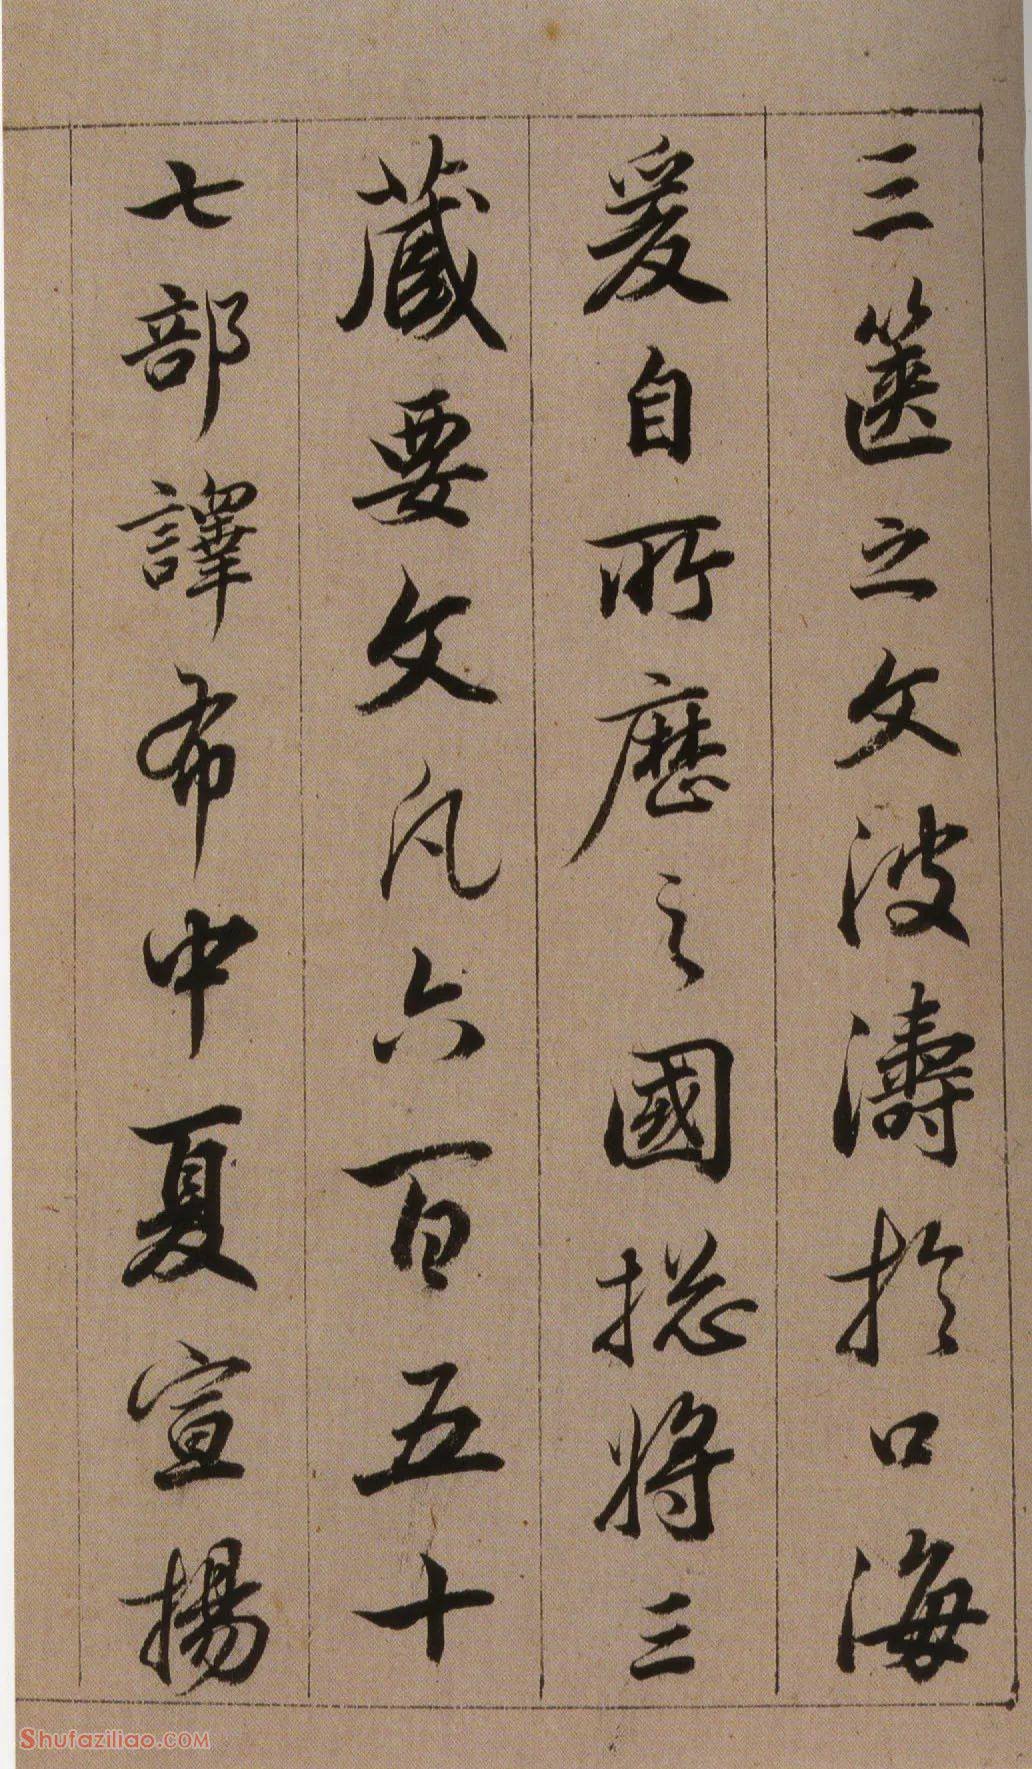 三篋之文波濤於口海
爰自所歷之國揔將三
藏要文凡六百五十
七部譯布中夏宣揚
Shufaziliao.COM